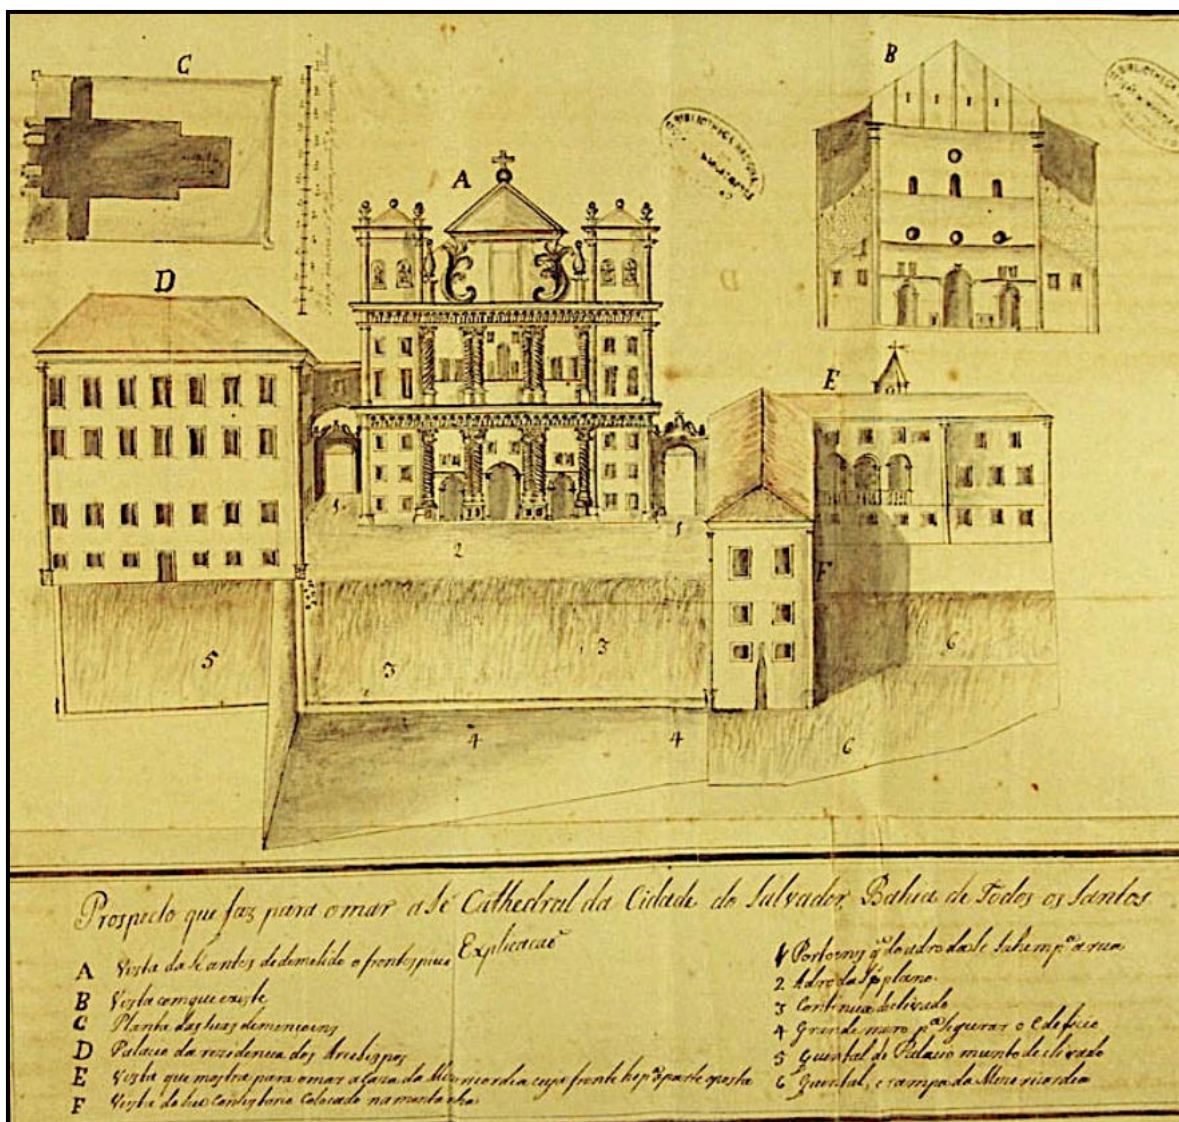 C
B
A
BIBLIOTHECA NACIONAL
D
E
F
1
1
2
3
3
4
4
5
6
6
Prospecto que faz para o mar a Sé Cathedral da Cidade do Salvador Bahia de Todos os Santos
Explicacaõ
A Vista da Sé antes de demolido o frontespicio
B Vista com que existe
C Planta das suas demencoens
D Palacio da rezidencia dos Arcebispos
E Vista que mostra para o mar a caza da Mizericordia cuja frente he pª parte oposta
F Vista do seu Consistorio Colocado na montanha
1 Portoens q do adro da Se sahem pª a rua
2 Adro da Sé plano
3 Continua declivado
4 Grande muro pª segurar o Edeficio
5 Quintal do Palacio muito declivado
6 Quintal, e rampa da Mizericordia